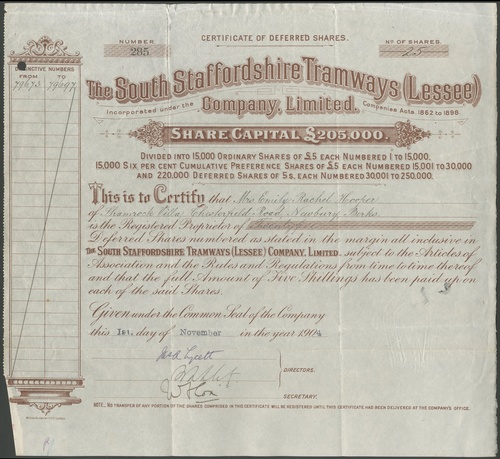 NUMBER
295
CERTIFICATE OF DEFERRED SHARES.
No OF SHARES.
25
DISTINCTIVE NUMBERS
FROM TO
79673 79697
The South Staffordshire Tramways (Lessee)
Incorporated under the Company, Limited. Companies Acts, 1862 to 1898.
SHARE CAPITAL £205,000.
DIVIDED INTO 15,000 ORDINARY SHARES OF £5 EACH NUMBERED 1 TO 15,000.
15,000 SIX PER CENT CUMULATIVE PREFERENCE SHARES OF £5 EACH NUMBERED 15,001 TO 30,000
AND 220,000 DEFERRED SHARES OF 5s, EACH NUMBERED 30,001 TO 250,000.
This is to Certify that Mrs Emily Rachel Hooper
of Shamrock Villa Chesterfield Road, Newbury Berks
is the Registered Proprietor of Twentyfive
Deferred Shares numbered as stated in the margin all inclusive in
THE SOUTH STAFFORDSHIRE TRAMWAYS (LESSEE) COMPANY, LIMITED. subject to the Articles of
Association and the Rules and Regulations from time to time thereof
and that the full Amount of Five Shillings has been paid up on
each of the said Shares.
Given under the Common Seal of the Company
this 1st. day of November in the year 1904
DIRECTORS.
SECRETARY.
NOTE.: NO TRANSFER OF ANY PORTION OF THE SHARES COMPRISED IN THIS CERTIFICATE WILL BE REGISTERED UNTIL THIS CERTIFICATE HAS BEEN DELIVERED AT THE COMPANY'S OFFICE.